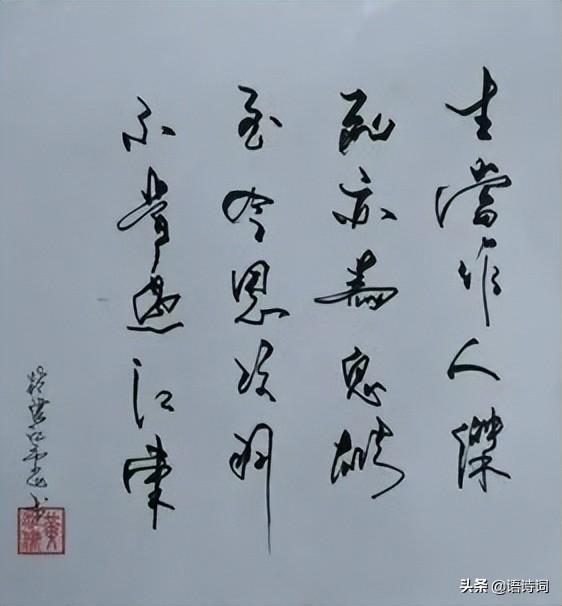 生當作人傑
死亦為鬼雄
至今思項羽
不肯過江東
头条 @语诗词